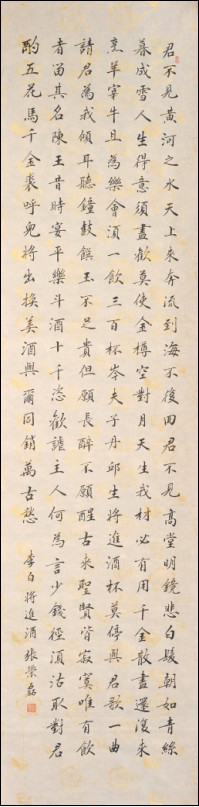 君不見黃河之水天上來奔流到海不復回君不見高堂明鏡悲白髮朝如青絲
暮成雪人生得意須盡歡莫使金樽空對月天生我材必有用千金散盡還復來
烹羊宰牛且為樂會須一飲三百杯岑夫子丹邱生將進酒杯莫停與君歌一曲
請君為我傾耳聽鐘鼓饌玉不足貴但願長醉不願醒古來聖賢皆寂寞唯有飲
者留其名陳王昔時宴平樂斗酒十千恣歡謔主人何為言少錢徑須沽取對君
酌五花馬千金裘呼兒將出換美酒與爾同銷萬古愁
李白將進酒 張榮磊